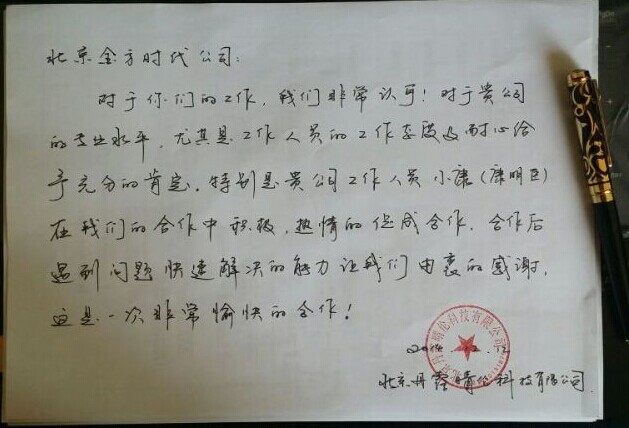 北京金方时代公司：
对于你们的工作，我们非常认可！对于贵公司
的专业水平，尤其是工作人员的工作态度及耐心给
予充分的肯定，特别是贵公司工作人员小康（康明臣）
在我们的合作中积极，热情的促成合作，合作后
遇到问题快速解决的能力让我们由衷的感谢，
这是一次非常愉快的合作！
北京丹 科技有限公司